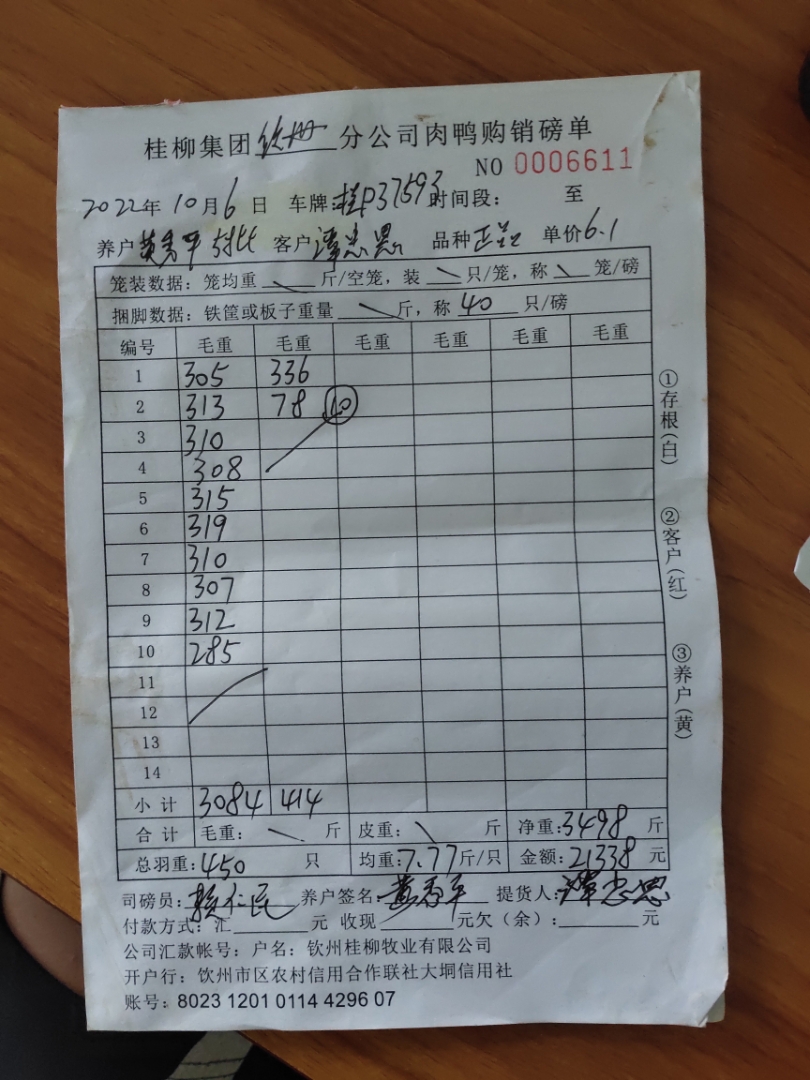 桂柳集团钦州分公司肉鸭购销磅单
NO 0006611
2022年10月6日 车牌:桂P37593时间段: 至
养户 黄秀平 客户 谭忠恩 品种 单价6.1
笼装数据: 笼均重 斤/空笼, 装 只/笼, 称 笼/磅
捆脚数据: 铁筐或板子重量 斤, 称 40 只/磅
编号 毛重 毛重 毛重 毛重 毛重 毛重
1 305 336
2 313 78 40
3 310
4 308
5 315
6 319
7 310
8 307
9 312
10 285
11
12
13
14
小计 3084 414
合计 毛重: 斤 皮重: 斤 净重:3498 斤
总羽重:450 只 均重:7.77斤/只 金额:21338 元
司磅员:赖仁民 养户签名:黄秀平 提货人:谭忠恩
付款方式: 汇 元 收现 元欠(余): 元
公司汇款帐号: 户名: 钦州桂柳牧业有限公司
开户行: 钦州市区农村信用合作联社大垌信用社
账号: 8023 1201 0114 4296 07
①存根(白)
②客户(红)
③养户(黄)